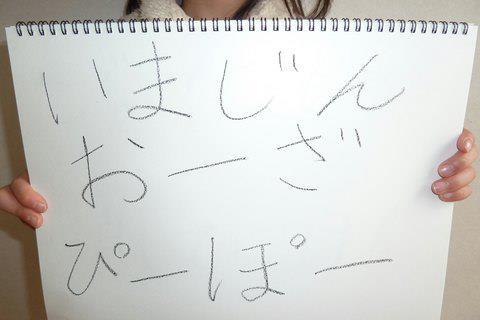 いまじん
おーざ
ぴーぽー